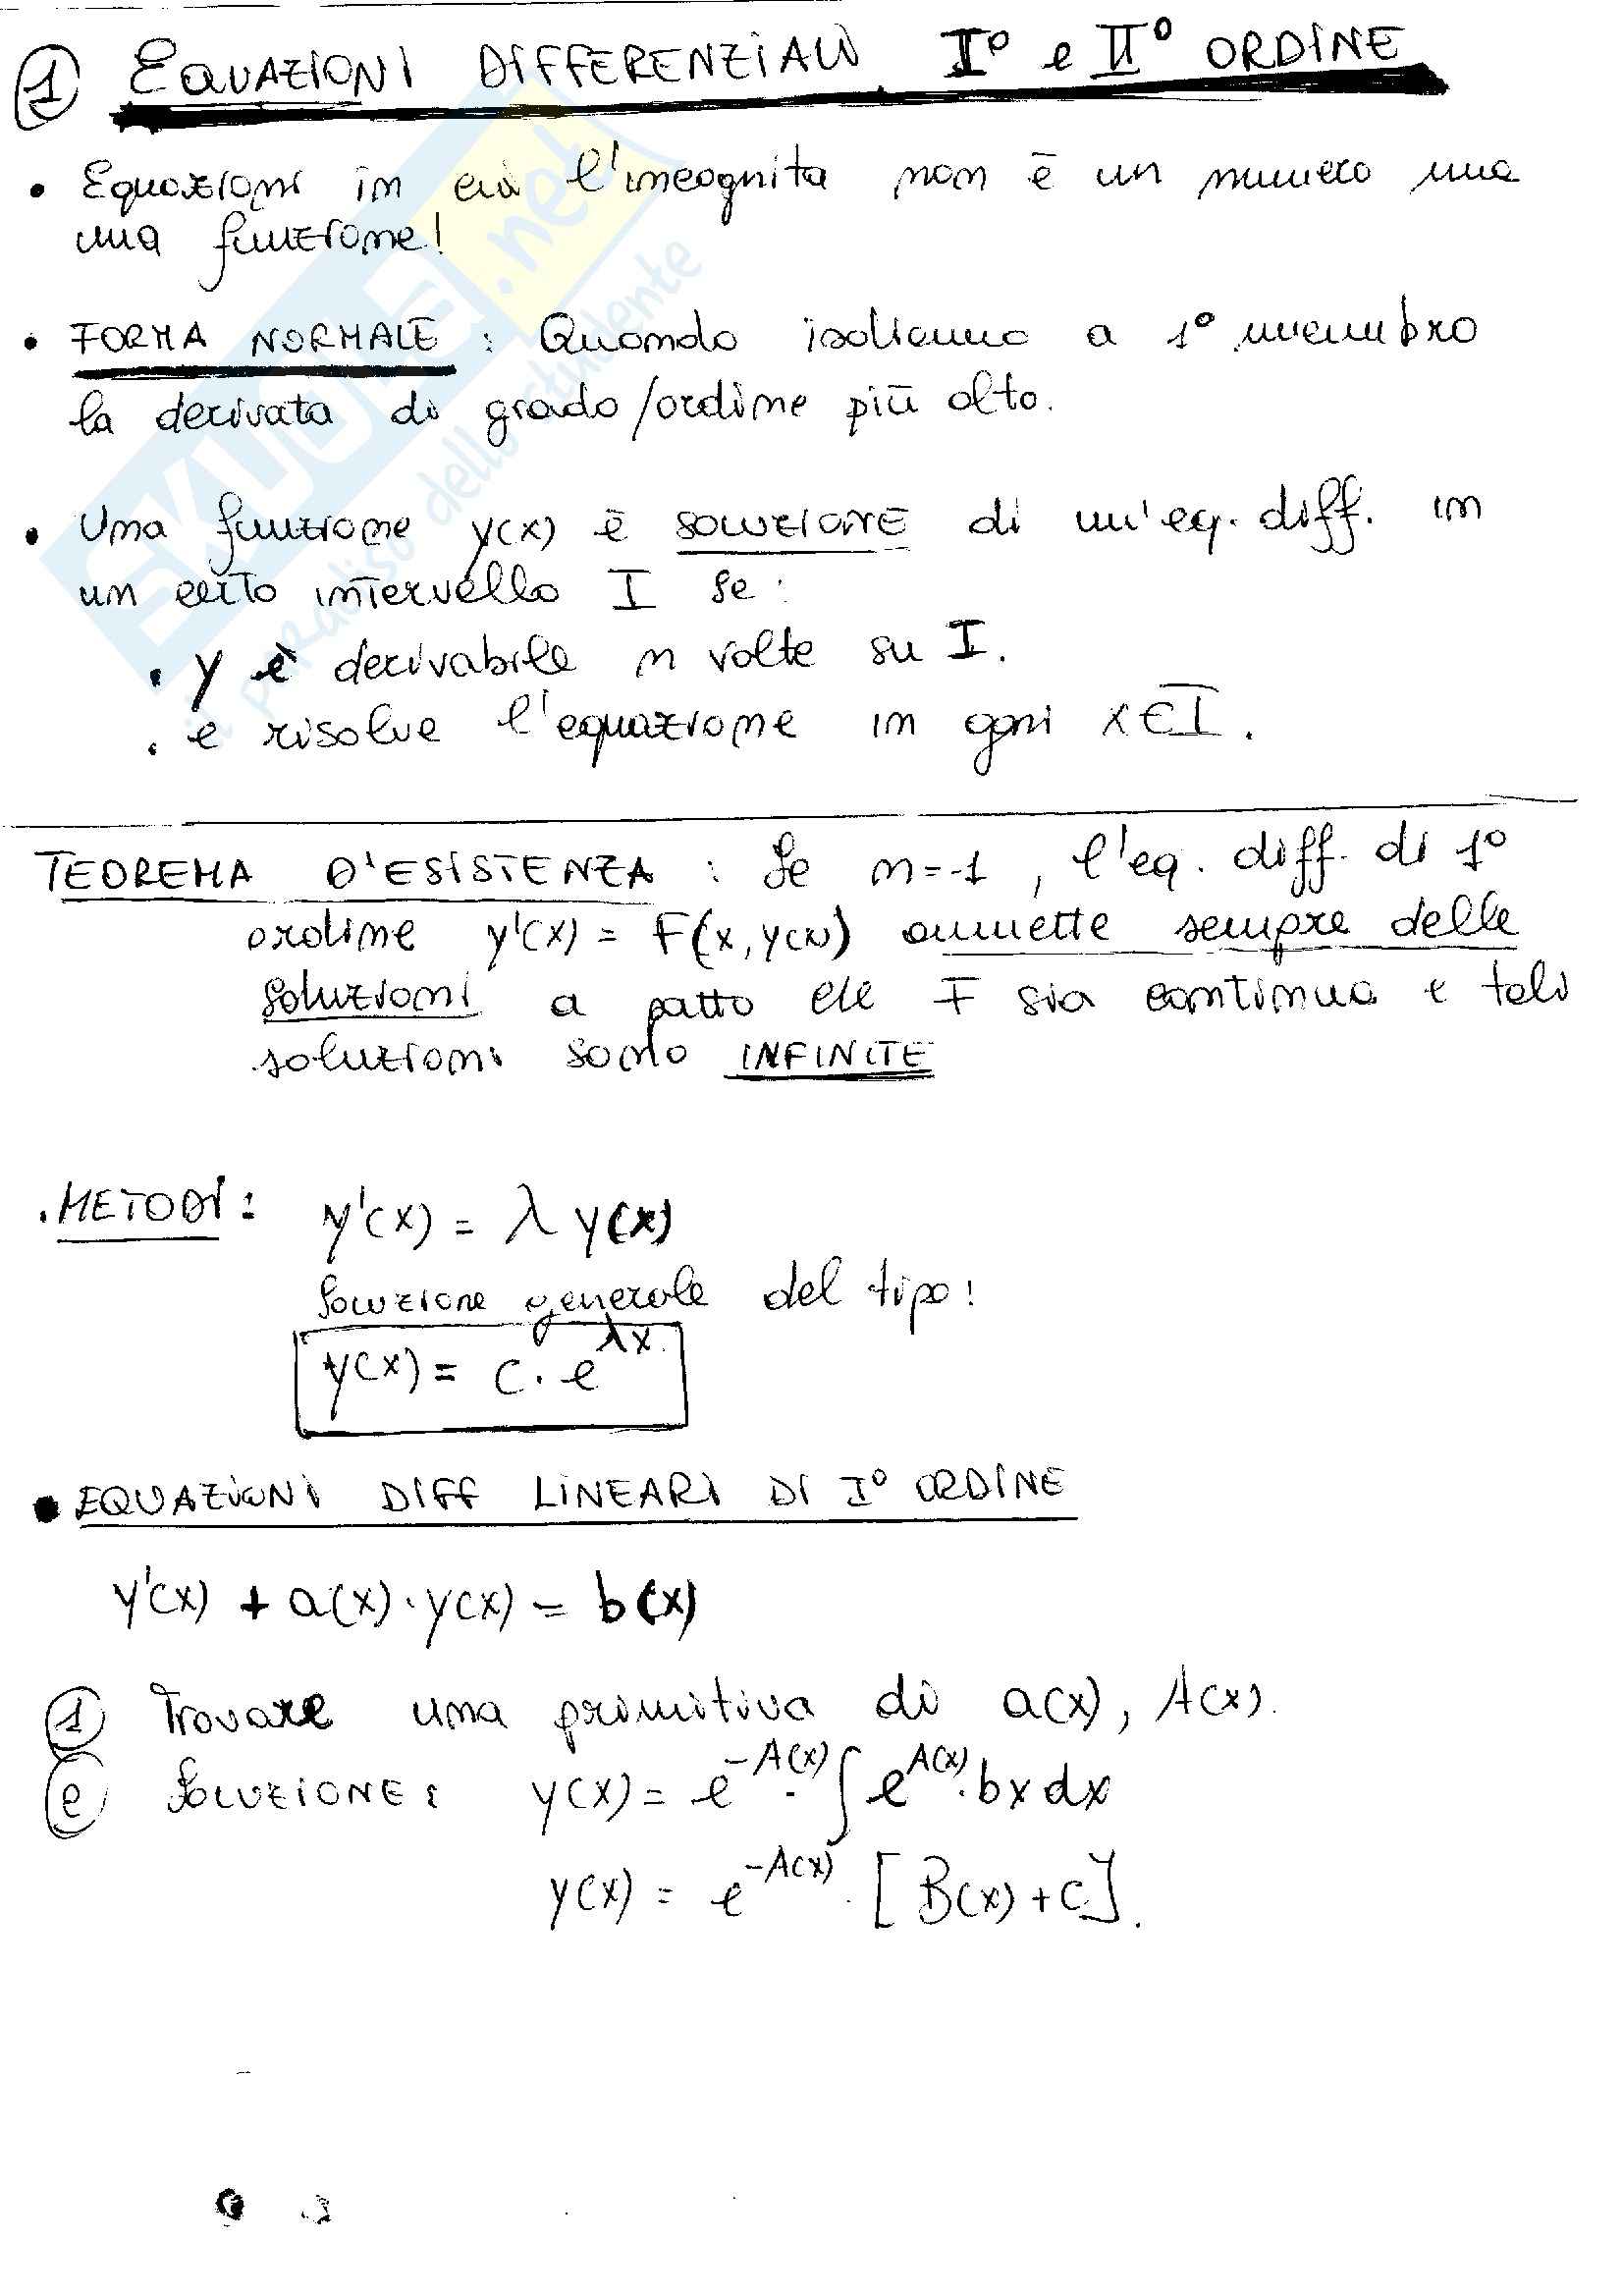 ① EQUAZIONI DIFFERENZIALI I° e II° ORDINE
• Equazioni in cui l'incognita non è un numero ma
una funzione!
• FORMA NORMALE : Quando isoliamo a 1° membro
la derivata di grado/ordine più alto.
• Una funzione y(x) è SOLUZIONE di un'eq. diff. in
un certo intervallo I se :
• y è derivabile n volte su I.
• e risolve l'equazione in ogni x∈I.
TEOREMA D'ESISTENZA : Se n=1, l'eq. diff. di 1°
ordine y'(x) = F(x, y(x)) ammette sempre delle
soluzioni a patto che F sia continua e tali
soluzioni sono INFINITE
• METODI : y'(x) = λ y(x)
Soluzione generale del tipo:
y(x) = c · e^λx
• EQUAZIONI DIFF LINEARI DI I° ORDINE
y'(x) + a(x) · y(x) = b(x)
① Trovare una primitiva di a(x), A(x).
② SOLUZIONE : y(x) = e^-A(x) · ∫ e^A(x) · bx dx
y(x) = e^-A(x) · [B(x) + c].
SKUOLA.net
il paradiso dello studente